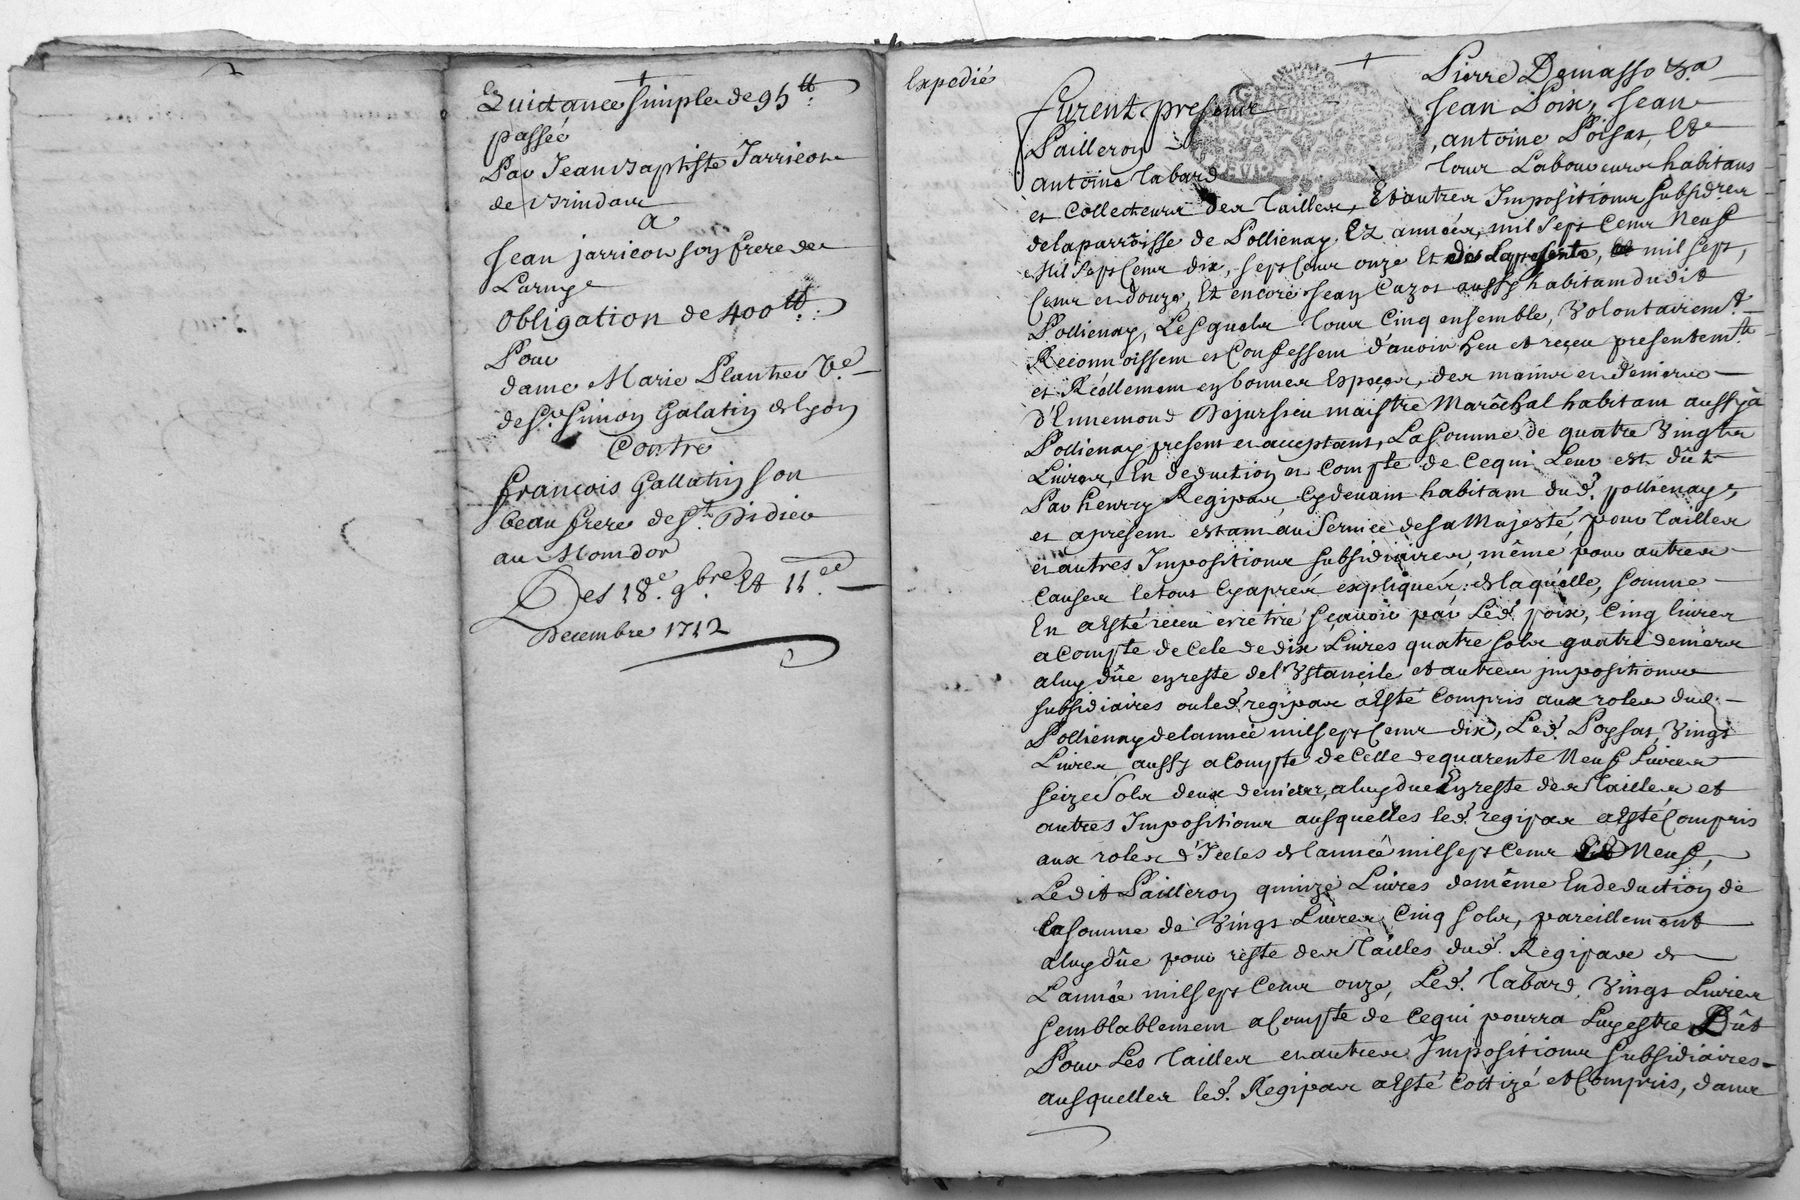 Quictance simple de 95tt
passée
Par Jean Baptiste Jarricon
de Brindas
A
Jean jarricon son frere de
Obligation de 400tt
Pour
dame Marie Plantier Ve
de Sr Simon Galatin de Lyon
Contre
françois Gallatin son
beau frere de St Didier
au Montdor
Des 18e 9bre Et 11ee
Decembre 1712
Expedié
Pierre Demasso &a
furent presens Jean Poix, Jean
Pailleron, antoine Poisat, Et
antoine Tabard tous Laboureurs habitans
et Collecteurs des Tailles, Et autres Impositions subsidres
de la parroisse de Pollienay Ez années, mil sept Cens Neuf
Mil sept Cens dix, sept Cens onze Et mil sept,
Cens et douze, Et encore Jean Cazot aussy habitant dudit
Pollienay, Lesquels tous Cinq ensemble, Volontairemt
Reconnoissent et Confessent d'avoir heu et reçeu presentemt
et Réellement en bonnes Espeçes, des mains et deniers
d'Ennemond Dejussieu maistre Marêchal habitant aussy à
Pollienay present et acceptant, La somme de quatre Vingts
Livres, En deduction et Compte de Cequi Leur est dût
Par henrry Regipas Cydevant habitant dud. pollienay,
et apresent estant au Service de sa Majesté, pour tailles
et autres Impositions subsidiaires, même pour autres
Causes letout Cyaprés expliqués; de laquelle, somme
En a Esté receu et retiré sçavoir par Led. poix, Cinq livres
a Compte de Celle de dix Livres quatre sols quatre deniers
a luy dûe en reste de l'Vstancile et autres jmpositions
subsidiaires ou led. regipas a Esté Compris aux roles dud.
Pollienay de lannée mil sept Cens dix, Led. Poysat Vingt
Livres aussy a Compte de Celle de quarente Neuf Livres
seize Sols deux deniers, a luy due En reste des Tailles et
autres Impositions ausquelles led. regipas a Esté Compris
aux roles d'Icelles de lannée mil sept Cens Neuf,
Ledit Pailleron quinze Livres de même En deduction de
la somme de Vingt Livres Cinq sols, pareillement
a luy dûe pour reste des Tailles dud. Regipas de
L'année mil sept Cens onze, Led. Tabard Vingt Livres
semblablement a Compte de Cequi pourra Luy estre Dût
Pour Les Tailles et autres Impositions subsidiaires
ausquelles led. Regipas a Esté Cottizé et Compris, dans